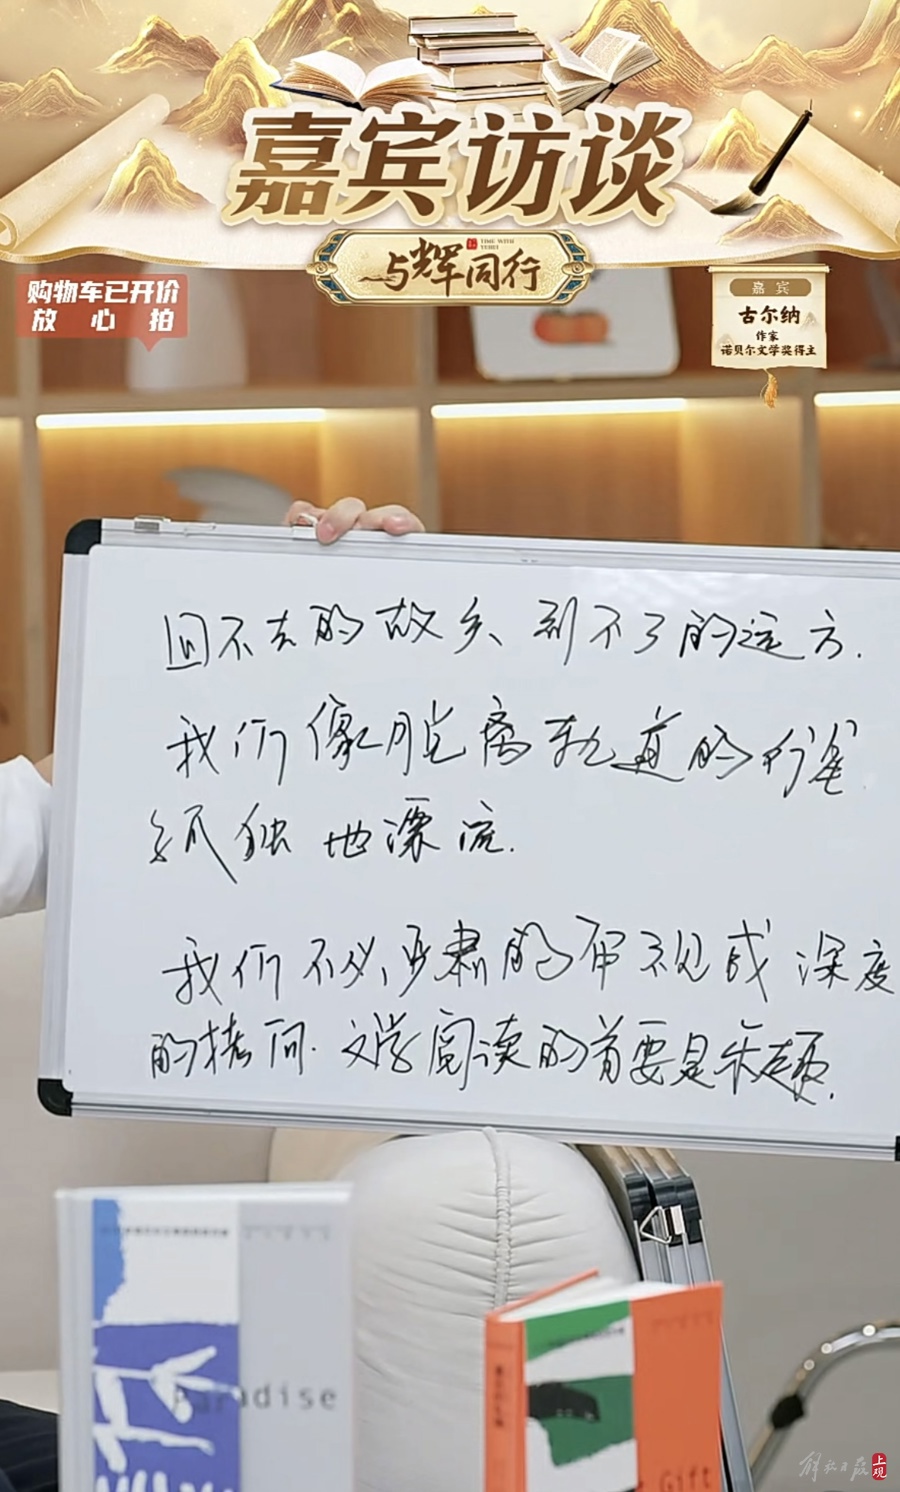 嘉宾访谈
与辉同行
TIME WITH
YUHUI
购物车已开价
放心拍
嘉宾
古尔纳
作家
诺贝尔文学奖得主
回不去的故乡、到不了的远方.
我们像脱离轨道的行星
孤独地漂流.
我们不必严肃的审视或深度
的拷问.文学阅读的首要是乐趣.
Paradise
Gift
解放日报
上观